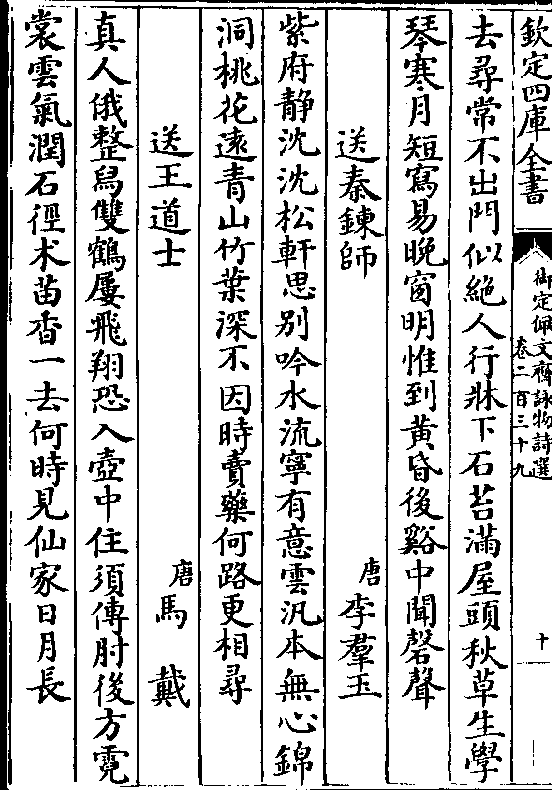 欽定四庫全書
御定佩文齋詠物詩選
卷二百三十九
十
去尋常不出門似絶人行牀下石苔滿屋頭秋草生學
琴寒月短寫易晚窗明惟到黄昏後谿中聞磬聲
送秦鍊師
唐 李羣玉
紫府静沈沈松軒思别吟水流寧有意雲汎本無心錦
洞桃花逺青山竹葉深不因時賣藥何路更相尋
送王道士
唐 馬戴
真人俄整舄雙鶴屢飛翔恐入壺中住須傳肘後方霓
裳雲氣潤石徑术苗香一去何時見仙家日月長